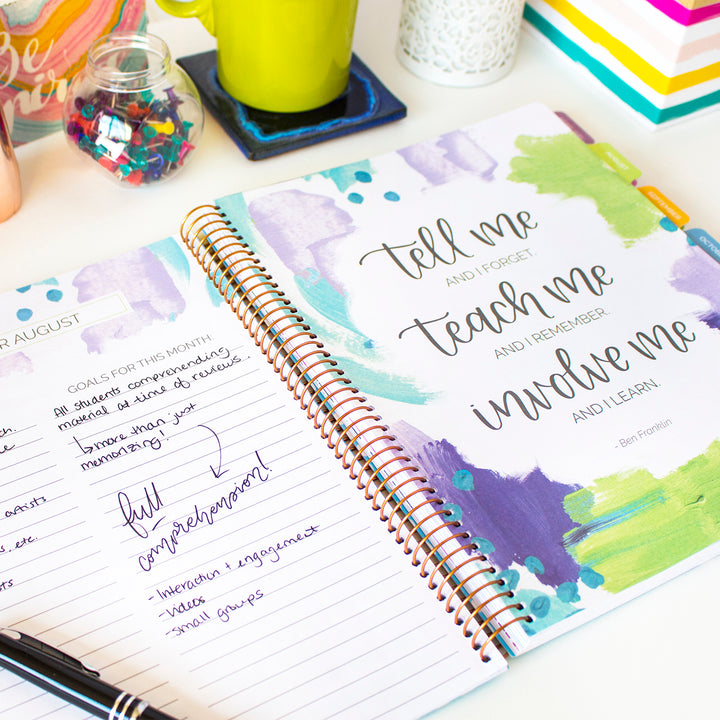 Be
R AUGUST
GOALS FOR THIS MONTH
All students comprehending
material at time of reviews.
↳more than just
memorizing!
full
comprehension!
-Interaction + engagement
-Videos
-small groups
ch.
artists
s, etc.
sts
tell me
AND I FORGET.
teach me
AND I REMEMBER.
involve me
AND I LEARN.
- Ben Franklin
AUGUST
SEPTEMBER
OCTOBER